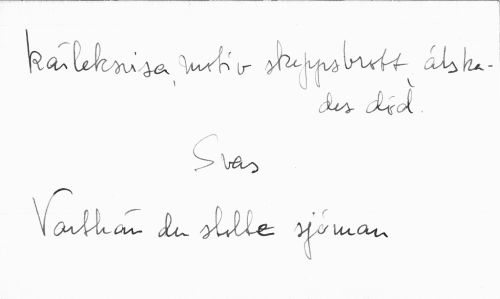 Kärleksvisa, motiv skeppsbrott älska-
des död.
Svar
Varthän du stolte sjöman